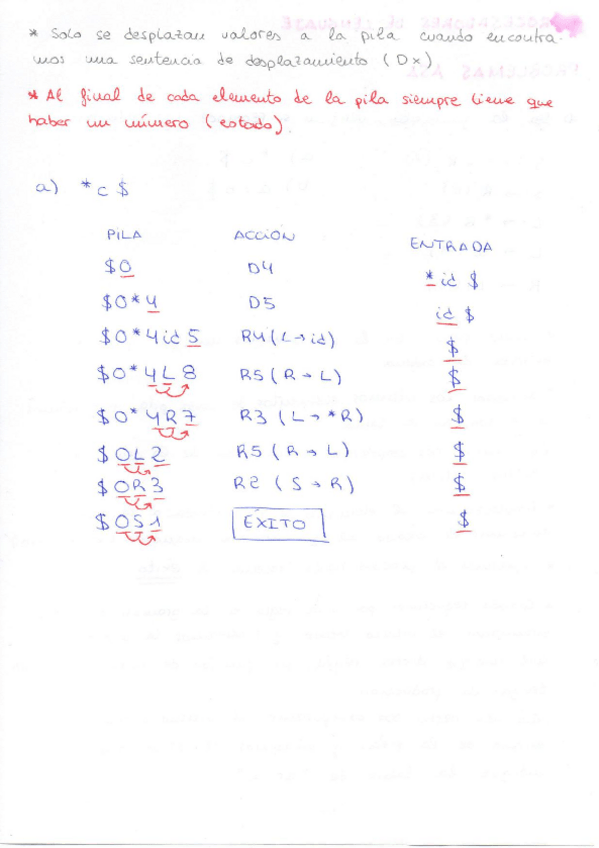 * Solo se desplazan valores a la pila cuando encontra-
mos una sentencia de desplazamiento (Dx)
* Al final de cada elemento de la pila siempre tiene que
haber un número (estado).
a) *c $
PILA ACCIÓN ENTRADA
$0 D4 *id $
$0*4 D5 id $
$0*4id5 R4 (L→id) $
$0*4L8 R5 (R→L) $
$0*4R7 R3 (L→*R) $
$0L2 R5 (R→L) $
$0R3 R2 (S→R) $
$0S1 ÉXITO $